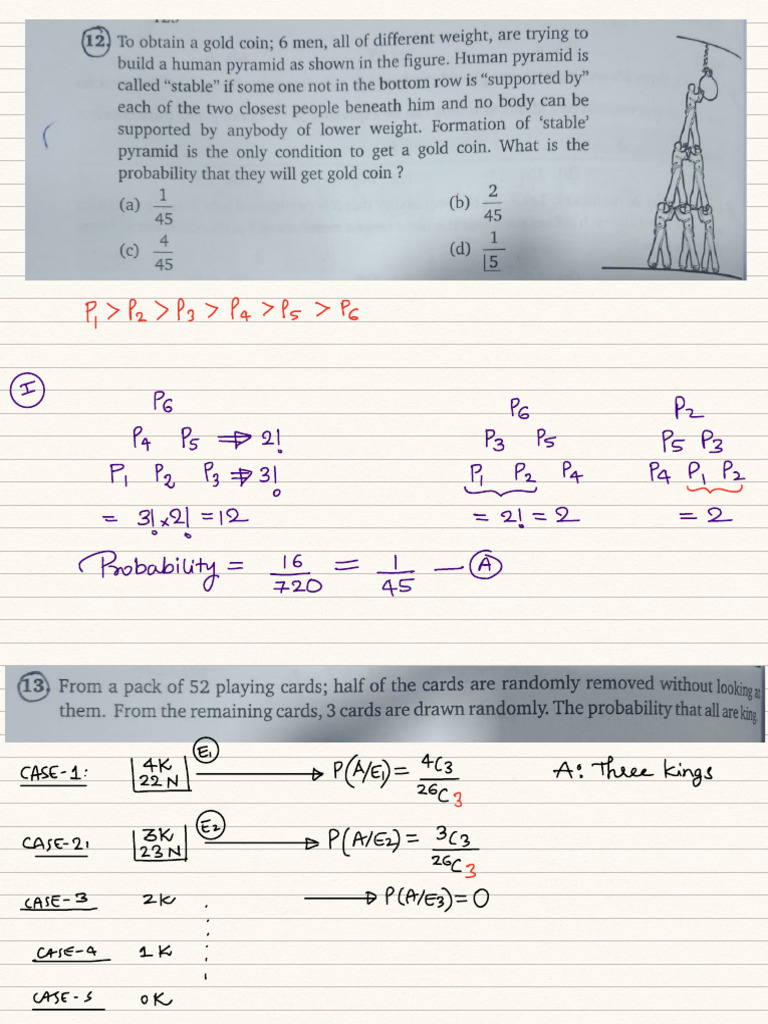 12. To obtain a gold coin; 6 men, all of different weight, are trying to
build a human pyramid as shown in the figure. Human pyramid is
called "stable" if some one not in the bottom row is "supported by"
each of the two closest people beneath him and no body can be
supported by anybody of lower weight. Formation of 'stable'
pyramid is the only condition to get a gold coin. What is the
probability that they will get gold coin ?
(a) 1/45 (b) 2/45
(c) 4/45 (d) 1/|5
P₁ > P₂ > P₃ > P₄ > P₅ > P₆
I
P₆ P₆ P₂
P₄ P₅ ⇒ 2! P₃ P₅ P₅ P₃
P₁ P₂ P₃ ⇒ 3! P₁ P₂ P₄ P₄ P₁ P₂
= 3! × 2! = 12 = 2! = 2 = 2
Probability = 16/720 = 1/45 — A
13. From a pack of 52 playing cards; half of the cards are randomly removed without looking at
them. From the remaining cards, 3 cards are drawn randomly. The probability that all are king.
CASE-1: 4K 22N E₁ → P(A/E₁) = 4C₃/26C₃ A: Three kings
CASE-2: 3K 23N E₂ → P(A/E₂) = 3C₃/26C₃
CASE-3 2K → P(A/E₃) = 0
CASE-4 1K
CASE-5 0K